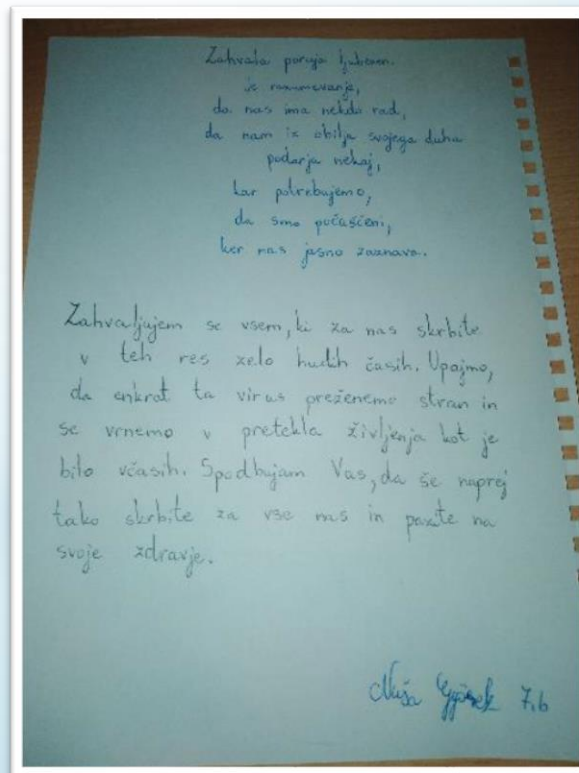 Zahvala poraja ljubezen.
je razumevanje,
da nas ima nekdo rad,
da nam iz obilja svojega duha
podarja nekaj,
kar potrebujemo,
da smo počaščeni,
ker nas jasno zaznava.
Zahvaljujem se vsem, ki za nas skrbite
v teh res zelo hudih časih. Upajmo,
da enkrat ta virus preženemo stran in
se vrnemo v pretekla življenja kot je
bilo včasih. Spodbujam Vas, da še naprej
tako skrbite za vse nas in pazte na
svoje zdravje.
Nuša 7.b